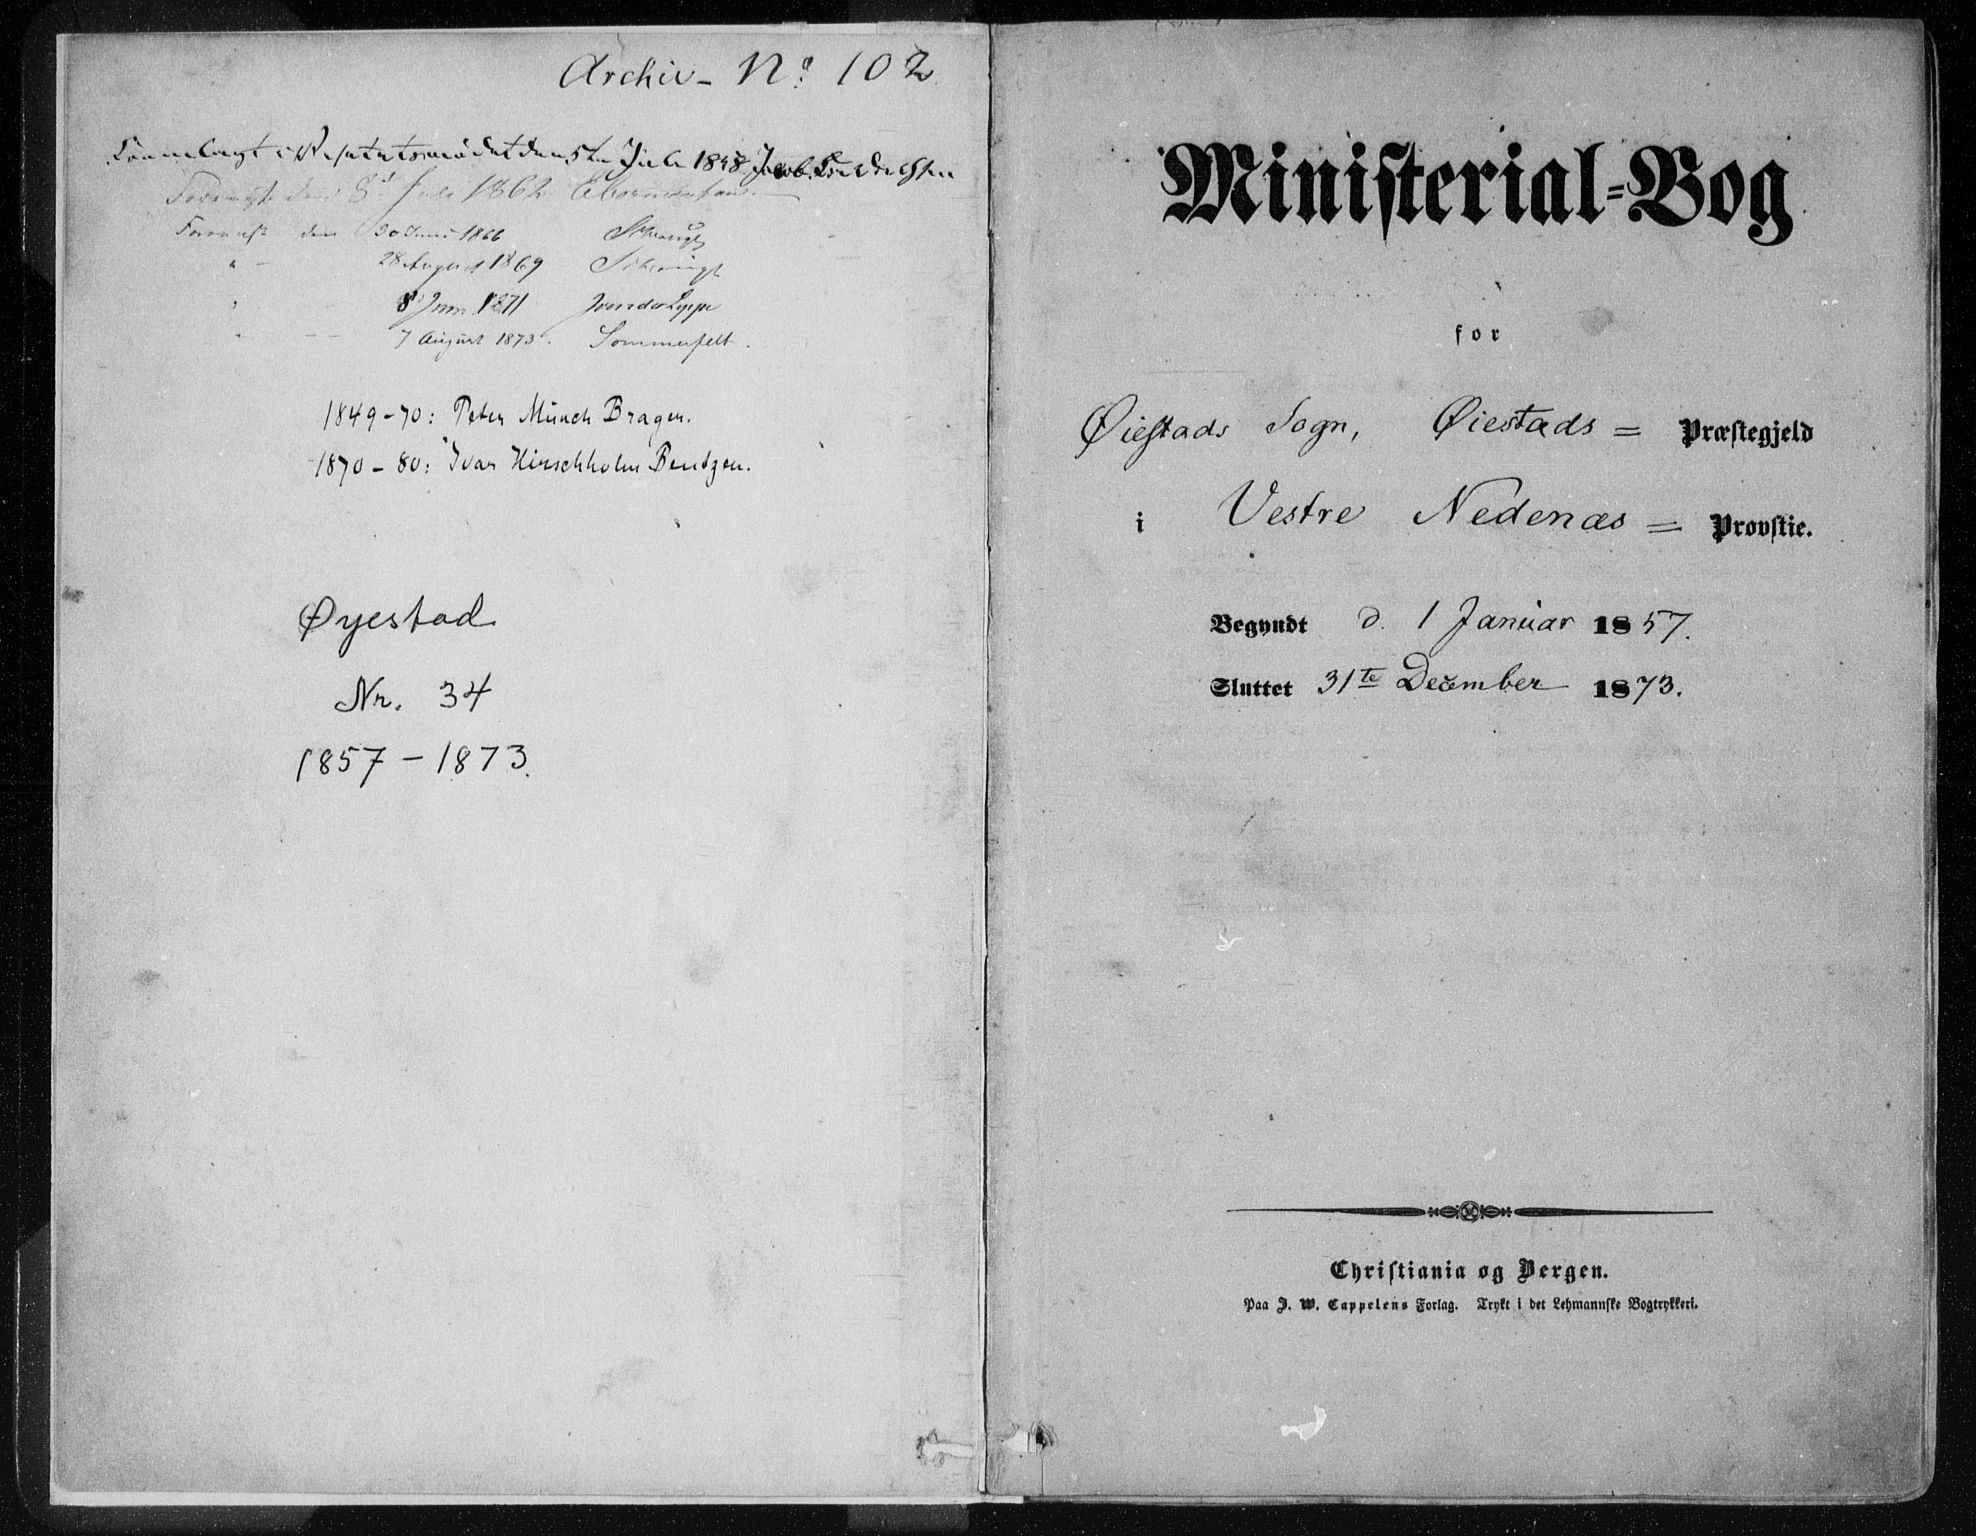 Archiv- No. 102.
den 5te Juli 1858 Jacob
den 8d Juli 1862
den 30 Juni 1866
28 August 1869
8 Juni 1871 J von der Lippe
7 August 1873. Sommerfelt.
1849-70: Peter Münch Brager.
1870-80: Ivar Hirschholm Bentzen.
Øyestad
Nr. 34
1857-1873.
Ministerial-Bog
for
Øiestads Sogn, Øiestads = Præstegjeld
i Vestre Nedenæs = Provstie.
Begyndt d. 1 Januar 1857.
Sluttet 31te December 1873.
Christiania og Bergen.
Paa J. W. Cappelens Forlag. Trykt i det Lehmannske Bogtrykkeri.